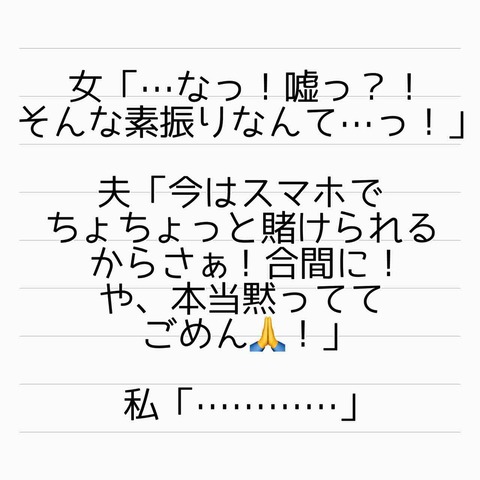 女「…なっ！嘘っ？！
そんな素振りなんて…っ！」
夫「今はスマホで
ちょちょっと賭けられる
からさぁ！合間に！
や、本当黙ってて
ごめん🙏！」
私「…………」